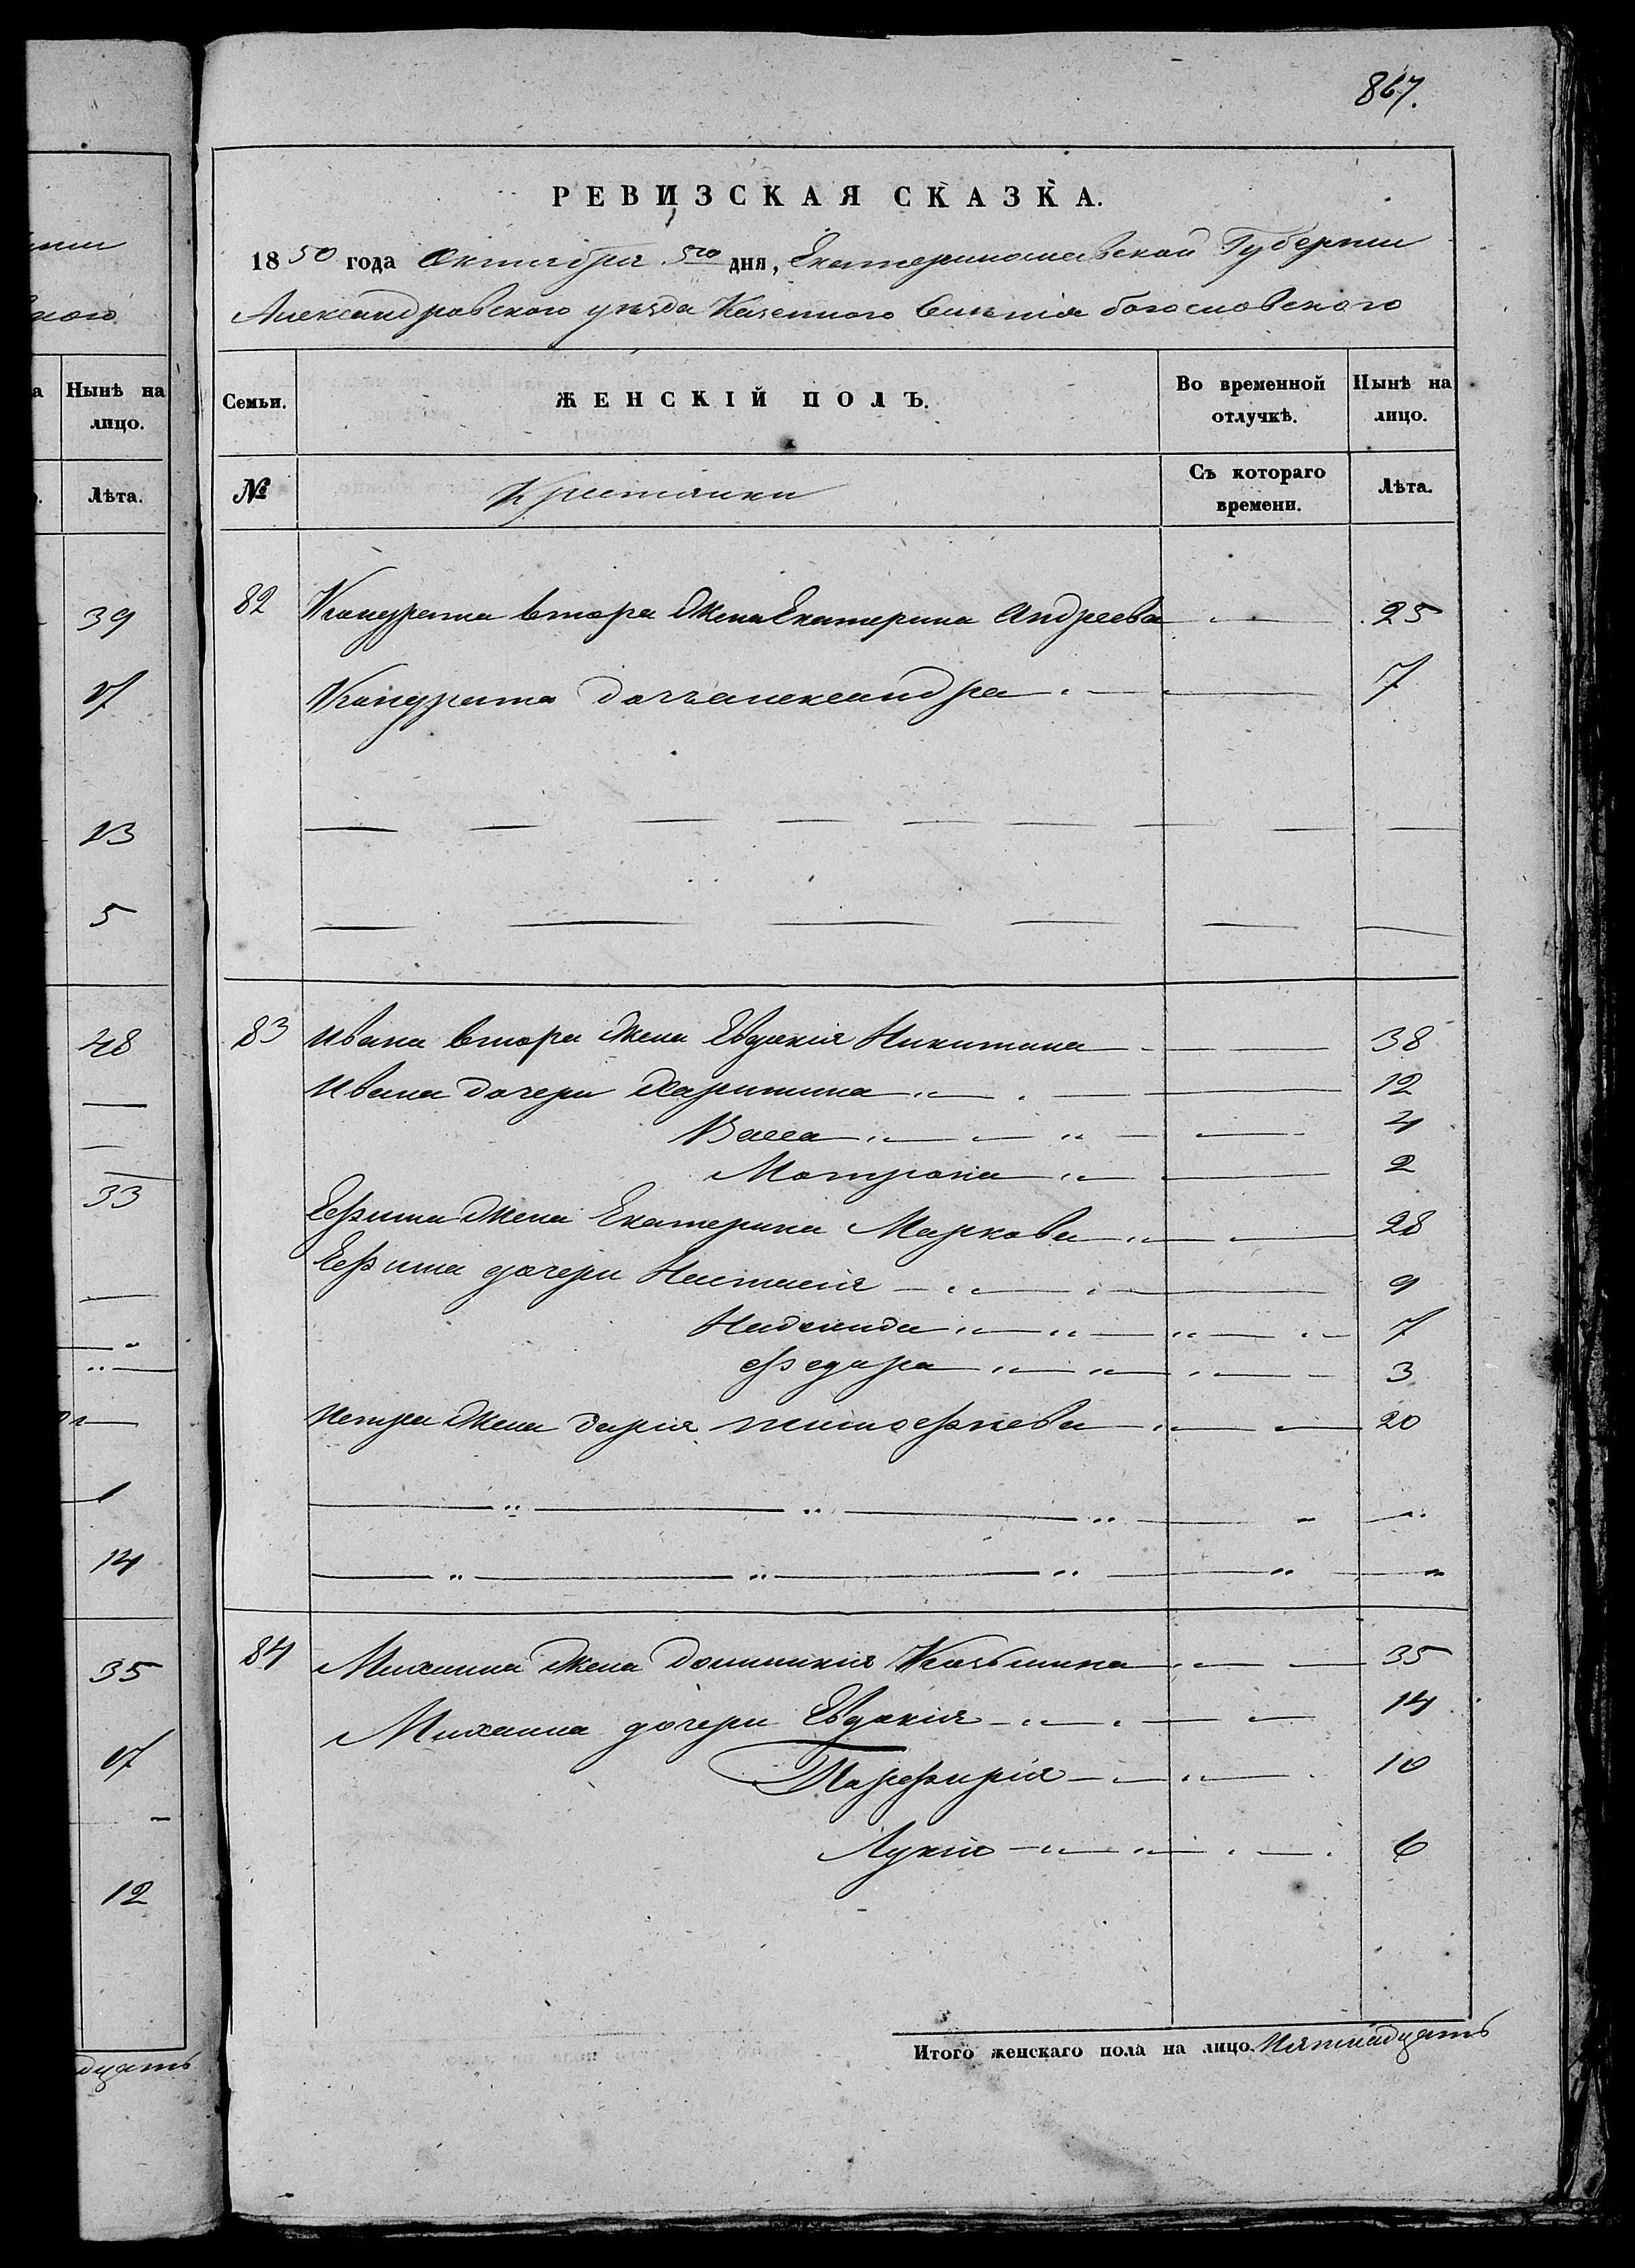 нии
ного
а
Нынѣ на
лицо.
Лѣта.
39
17
13
5
48
33
1
14
35
17
12
дцать
867.
РЕВИЗСКАЯ СКАЗКА.
1850 года Октября 5го дня, Екатеринославской Губернии
Александровского уѣзда Казенного Селѣния богословского
Семьи. ЖЕНСКІЙ ПОЛЪ. Во временной отлучкѣ. Нынѣ на лицо.
№ Кристянки Съ котораго времени. Лѣта.
82 Кондрата втора жена Екатерина Андреева 25
Кондрата дочь александра 7
83 Ивана втора жена Евдокия Никитина 38
Ивана дочери Харитина 12
Васса 4
Мотрона 2
Ефима жена Екатерина Маркова 28
Ефима дочери Настасия 9
Надежда 7
Федора 3
Петра жена дария тимофѣева 20
84 Михаила жена домникия Козьмина 35
Михаила дочери Евдокия 14
Парфирия 10
Лукия 6
Итого женскаго пола на лицо. Пятнадцать